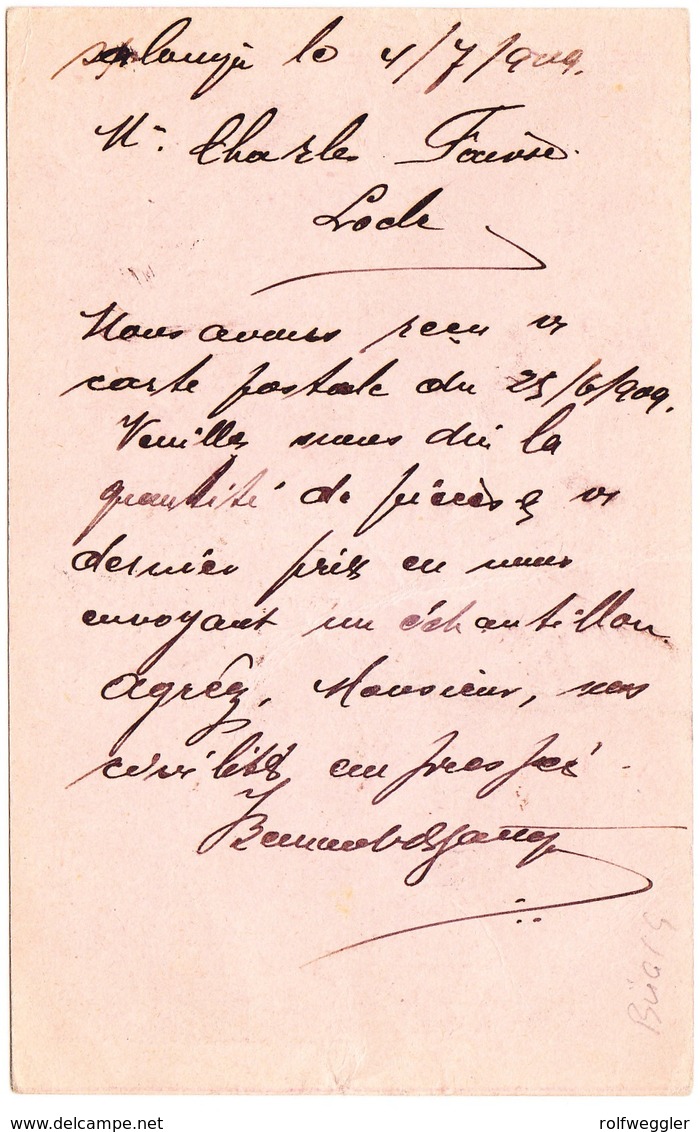 le 4/7/909.
Mr. Charles Faivre.
Locle
Nous avons reçu vs
carte postale du 25/6/909.
Veuillez nous dire la
quantité de pièces & vs
dernier prix en nous
envoyant un échantillon.
Agréez, Monsieur, nos
civilités empressées.
www.delcampe.net
rolfweggler